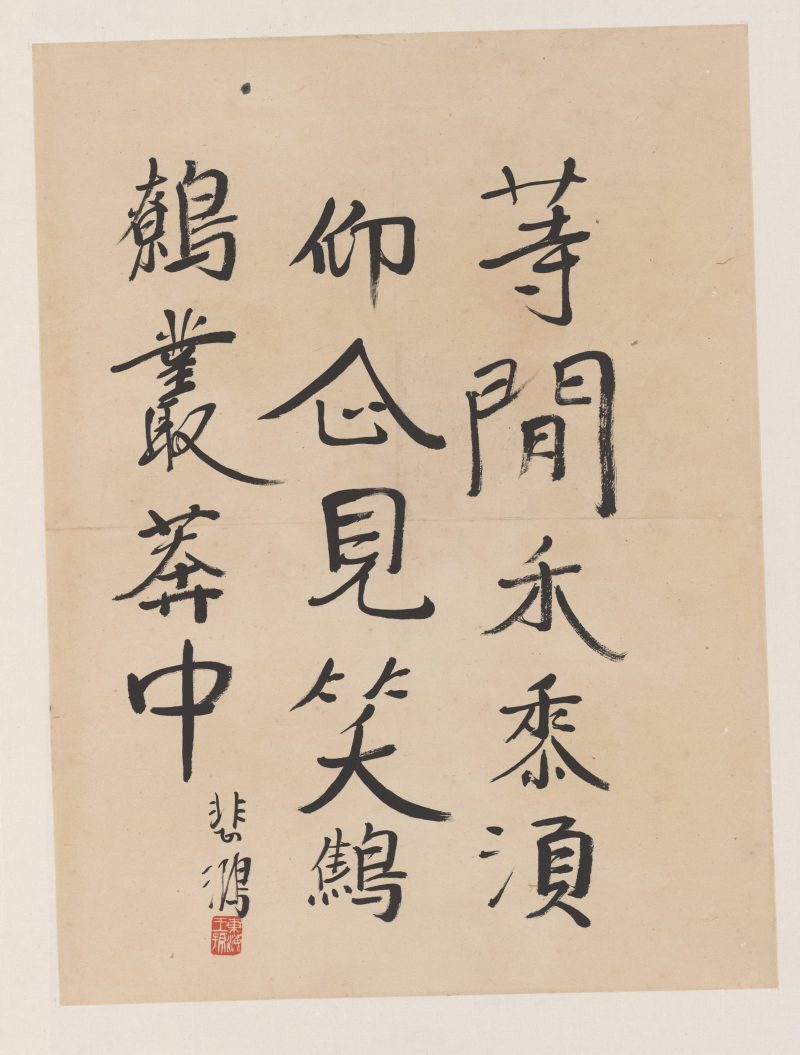 等閒禾黍須
仰企見笑鷦
鷯叢莽中
悲鴻
東海王孫